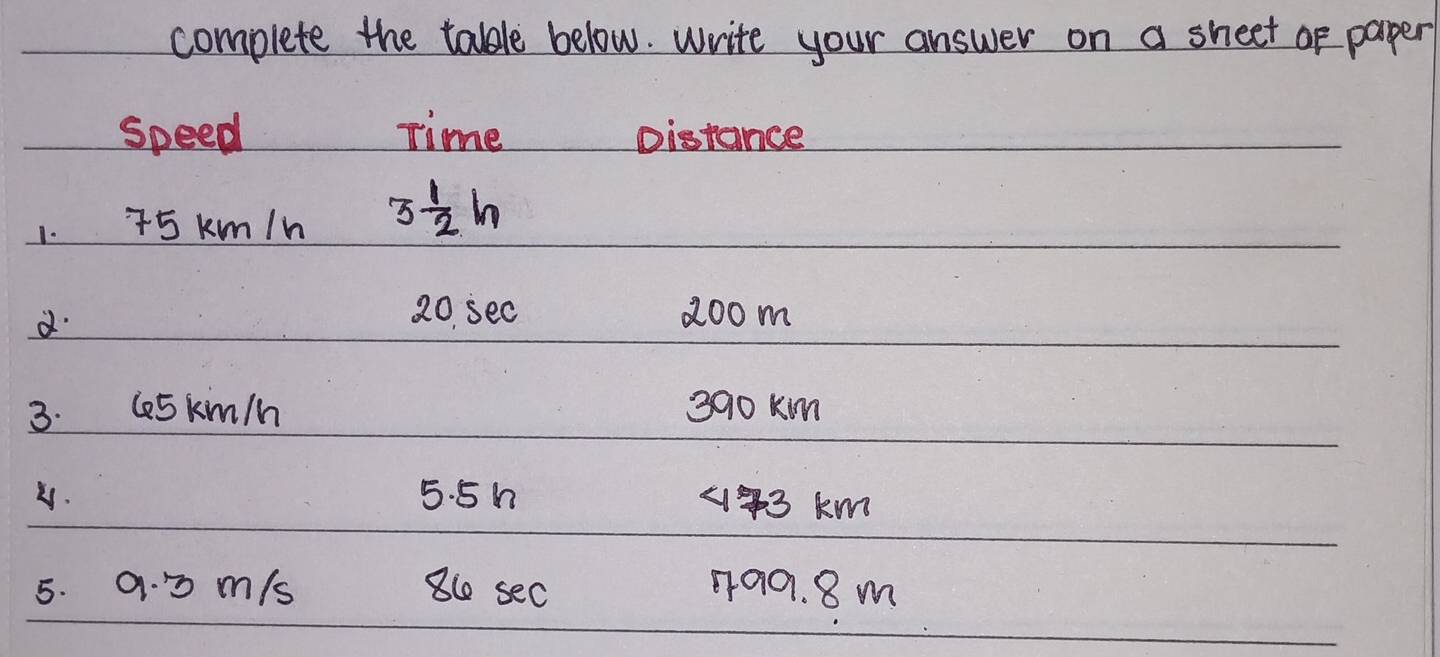 complete the table below. Write your answer on a sheet of paper
Speed Time Distance
1. 75 km/h 3 1/2 h
2. 20 sec 200 m
3. 65 km/h 390 km
4. 5.5 h 473 km
5. 9.3 m/s 86 sec 799.8 m